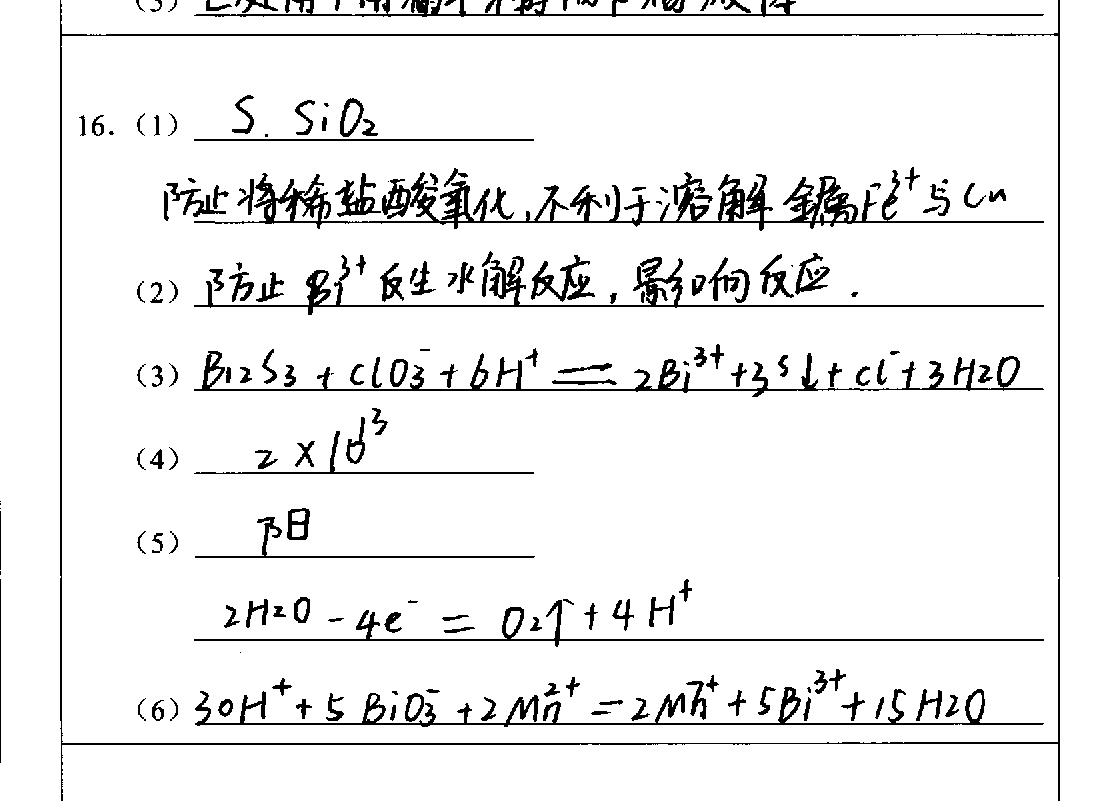 16. (1) S. SiO₂
防止将稀盐酸氧化,不利于溶解金属Fe³⁺与Cu
(2) 防止Bi³⁺反生水解反应,影响反应.
(3) Bi2S3 + ClO3⁻ + 6H⁺ == 2Bi³⁺ + 3S↓ + Cl⁻ + 3H2O
(4) 2 × 10³
(5) 阳
2H2O - 4e⁻ = O2↑ + 4H⁺
(6) 30H⁺ + 5BiO3⁻ + 2Mn²⁺ = 2Mn⁷⁺ + 5Bi³⁺ + 15H2O